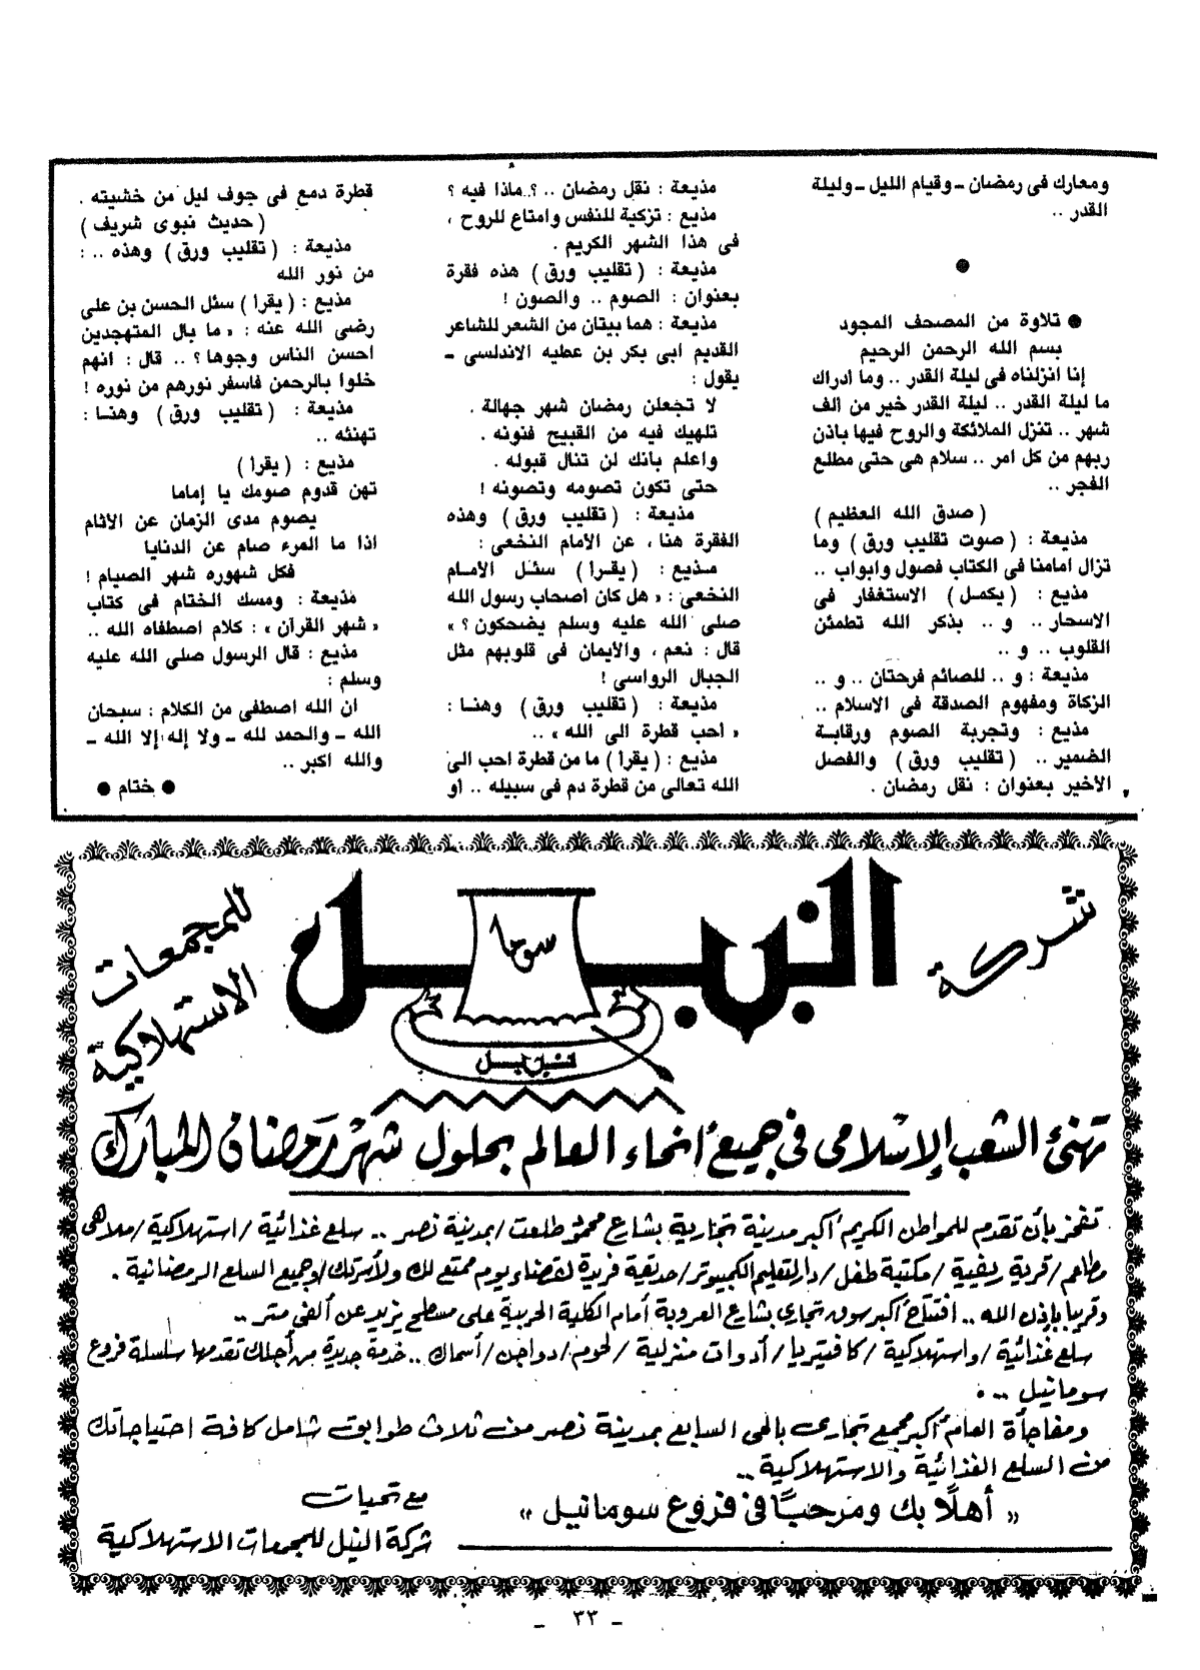 ومعارك فى رمضان ـ وقيام الليل ـ وليلة
القدر ..
●
● تلاوة من المصحف المجود
بسم الله الرحمن الرحيم
إنا انزلناه فى ليلة القدر .. وما ادراك
ما ليلة القدر .. ليلة القدر خير من الف
شهر .. تنزل الملائكة والروح فيها باذن
ربهم من كل امر .. سلام هى حتى مطلع
الفجر ..
( صدق الله العظيم )
مذيعة : ( صوت تقليب ورق ) وما
تزال امامنا فى الكتاب فصول وابواب ..
مذيع : ( يكمل ) الاستغفار فى
الاسحار .. و .. بذكر الله تطمئن
القلوب .. و ..
مذيعة : و .. للصائم فرحتان .. و ..
الزكاة ومفهوم الصدقة فى الاسلام ..
مذيع : وتجربة الصوم ورقابة
الضمير .. ( تقليب ورق ) والفصل
الاخير بعنوان : نقل رمضان .
مذيعة : نقل رمضان .. ؟ ماذا فيه ؟
مذيع : تزكية للنفس وامتاع للروح ،
فى هذا الشهر الكريم .
مذيعة : ( تقليب ورق ) هذه فقرة
بعنوان : الصوم .. والصون !
مذيعة : هما بيتان من الشعر للشاعر
القديم ابى بكر بن عطيه الاندلسى ـ
يقول :
لا تجعلن رمضان شهر جهالة .
تلهيك فيه من القبيح فنونه .
واعلم بانك لن تنال قبوله .
حتى تكون تصومه وتصونه !
مذيعة : ( تقليب ورق ) وهذه
الفقرة هنا ، عن الامام النخعى :
مذيع : ( يقرا ) سئل الامام
النخعى : « هل كان أصحاب رسول الله
صلى الله عليه وسلم يضحكون ؟ »
قال : نعم ، والأيمان فى قلوبهم مثل
الجبال الرواسى !
مذيعة : ( تقليب ورق ) وهنا :
« أحب قطرة الى الله » ..
مذيع : ( يقرأ ) ما من قطرة احب الى
الله تعالى من قطرة دم فى سبيله .. او
قطرة دمع فى جوف ليل من خشيته .
( حديث نبوى شريف )
مذيعة : ( تقليب ورق ) وهذه .. :
من نور الله
مذيع : ( يقرا ) سئل الحسن بن على
رضى الله عنه : « ما بال المتهجدين
احسن الناس وجوها ؟ .. قال : انهم
خلوا بالرحمن فاسفر نورهم من نوره !
مذيعة : ( تقليب ورق ) وهنا :
تهنئه ..
مذيع : ( يقرأ )
تهن قدوم صومك يا إماما
يصوم مدى الزمان عن الاثام
اذا ما المرء صام عن الدنايا
فكل شهوره شهر الصيام !
مذيعة : ومسك الختام فى كتاب
« شهر القرآن » : كلام اصطفاه الله ..
مذيع : قال الرسول صلى الله عليه
وسلم :
ان الله اصطفى من الكلام : سبحان
الله ـ والحمد لله ـ ولا إله إلا الله ـ
والله اكبر ..
● ختام ●
شركة
النيل
سوما
نيل
للمجمعات
الاستهلاكية
تهنئ الشعب الإسلامى فى جميع أنحاء العالم بحلول شهر رمضان المبارك
تفخر بأن تقدم للمواطن الكريم أكبر مدينة تجارية بشارع محمود طلعت / بمدينة نصر .. سلع غذائية / استهلاكية / ملاهى
مطاعم / قرية ريفية / مكتبة طفل / دار لتعليم الكمبيوتر / حديقة فريدة لقضاء يوم ممتع لك ولأسرتك / وجميع السلع الرمضانية .
وقريبا بإذن الله .. افتتاح أكبر سوق تجارى بشارع العروبة أمام الكلية الحربية على مسطح يزيد عن ألفى متر ..
سلع غذائية / واستهلاكية / كافتيريا / أدوات منزلية / لحوم / دواجن / أسماك .. خدمة جديدة من أجلك تقدمها سلسلة فروع
سومانيل ...
ومفاجأة العام أكبر مجمع تجارى بالحى السابع بمدينة نصر من ثلاث طوابق شامل كافة احتياجاتك
من السلع الغذائية والاستهلاكية ..
« أهلًا بك ومرحبًا فى فروع سومانيل »
مع تحيات
شركة النيل للمجمعات الاستهلاكية
ـ ٣٣ ـ